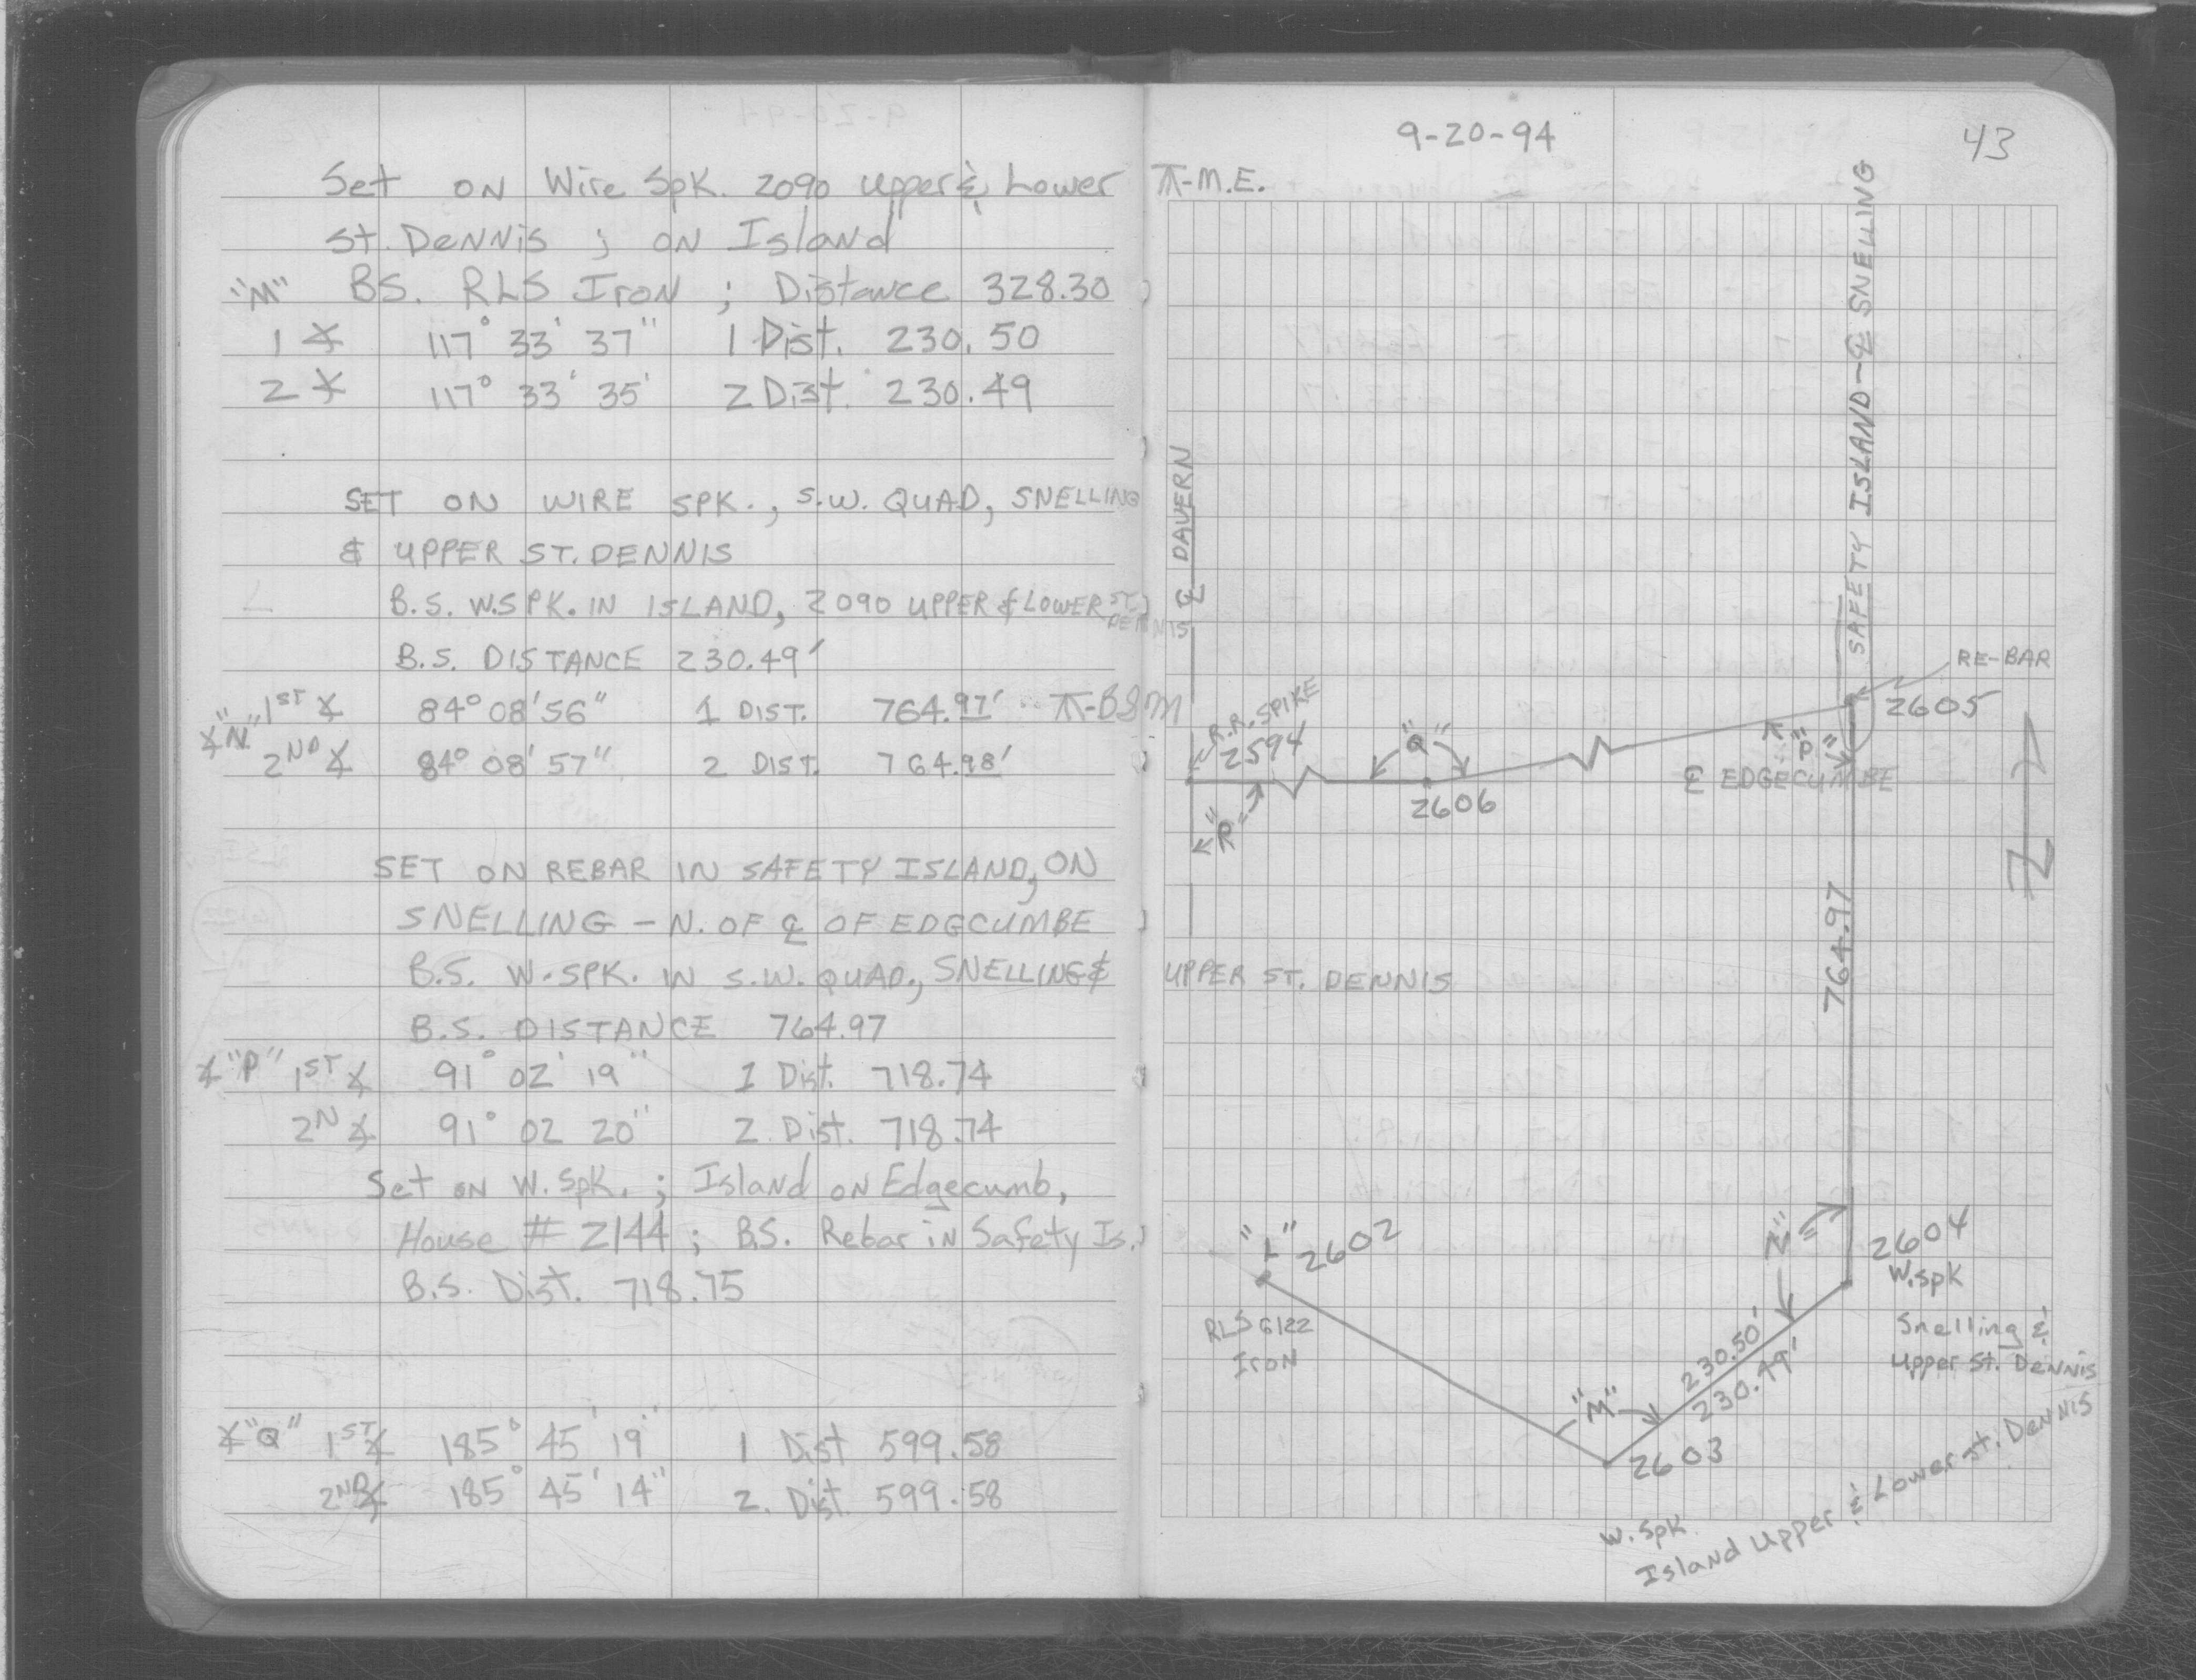 9-20-94
43
Set ON Wire Spk. 2090 Upper & Lower
St. Dennis ; ON Island
π-M.E.
"M" BS. RLS Iron ; Distance 328.30
1 ∡ 117° 33' 37" 1 Dist. 230.50
2 ∡ 117° 33' 35' 2 Dist. 230.49
SET ON WIRE SPK., S.W. QUAD, SNELLING
& UPPER ST. DENNIS
B.S. W.SPK. IN ISLAND, 2090 UPPER & LOWER ST. DENNIS
B.S. DISTANCE 230.49'
∡"N" 1ST ∡ 84° 08' 56" 1 DIST. 764.97' π-BSM
2ND ∡ 84° 08' 57" 2 DIST. 764.98'
SET ON REBAR IN SAFETY ISLAND, ON
SNELLING - N. OF ℄ OF EDGCUMBE
B.S. W.SPK. IN S.W. QUAD., SNELLING & UPPER ST. DENNIS
B.S. DISTANCE 764.97
∡"P" 1ST ∡ 91° 02' 19" 1 Dist. 718.74
2N ∡ 91° 02 20" 2. Dist. 718.74
Set ON W. Spk. ; Island ON Edgecumb,
House # 2144 ; B.S. Rebar iN Safety Is.
B.S. Dist. 718.75
∡"Q" 1ST ∡ 185° 45' 19" 1 Dist 599.58
2ND ∡ 185° 45' 14" 2. Dist. 599.58
℄ DAVERN
SAFETY ISLAND-℄ SNELLING
RE-BAR
2605
R.R. SPIKE
2594
"Q"
"P"
℄ EDGECUMBE
2606
"R"
N
764.97
"L" 2602
RLS 6122
IRON
"N"
2604
W.Spk
Snelling &
Upper St. Dennis
230.50'
230.49'
"M"
2603
W. Spk.
Island Upper & Lower St. Dennis